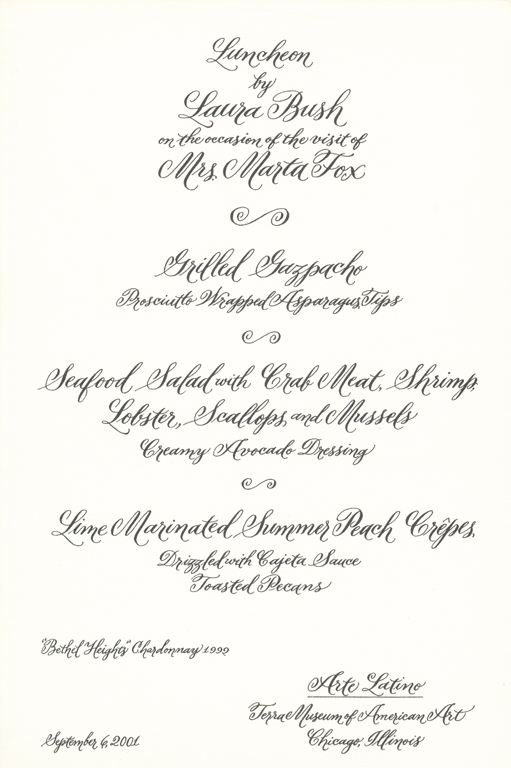 Luncheon
by
Laura Bush
on the occasion of the visit of
Mrs. Marta Fox
Grilled Gazpacho
Prosciutto Wrapped Asparagus Tips
Seafood Salad with Crab Meat, Shrimp,
Lobster, Scallops, and Mussels
Creamy Avocado Dressing
Lime Marinated Summer Peach Crêpes,
Drizzled with Cajeta Sauce
Toasted Pecans
"Bethel Heights" Chardonnay 1999
Arte Latino
Terra Museum of American Art
Chicago, Illinois
September 6, 2001